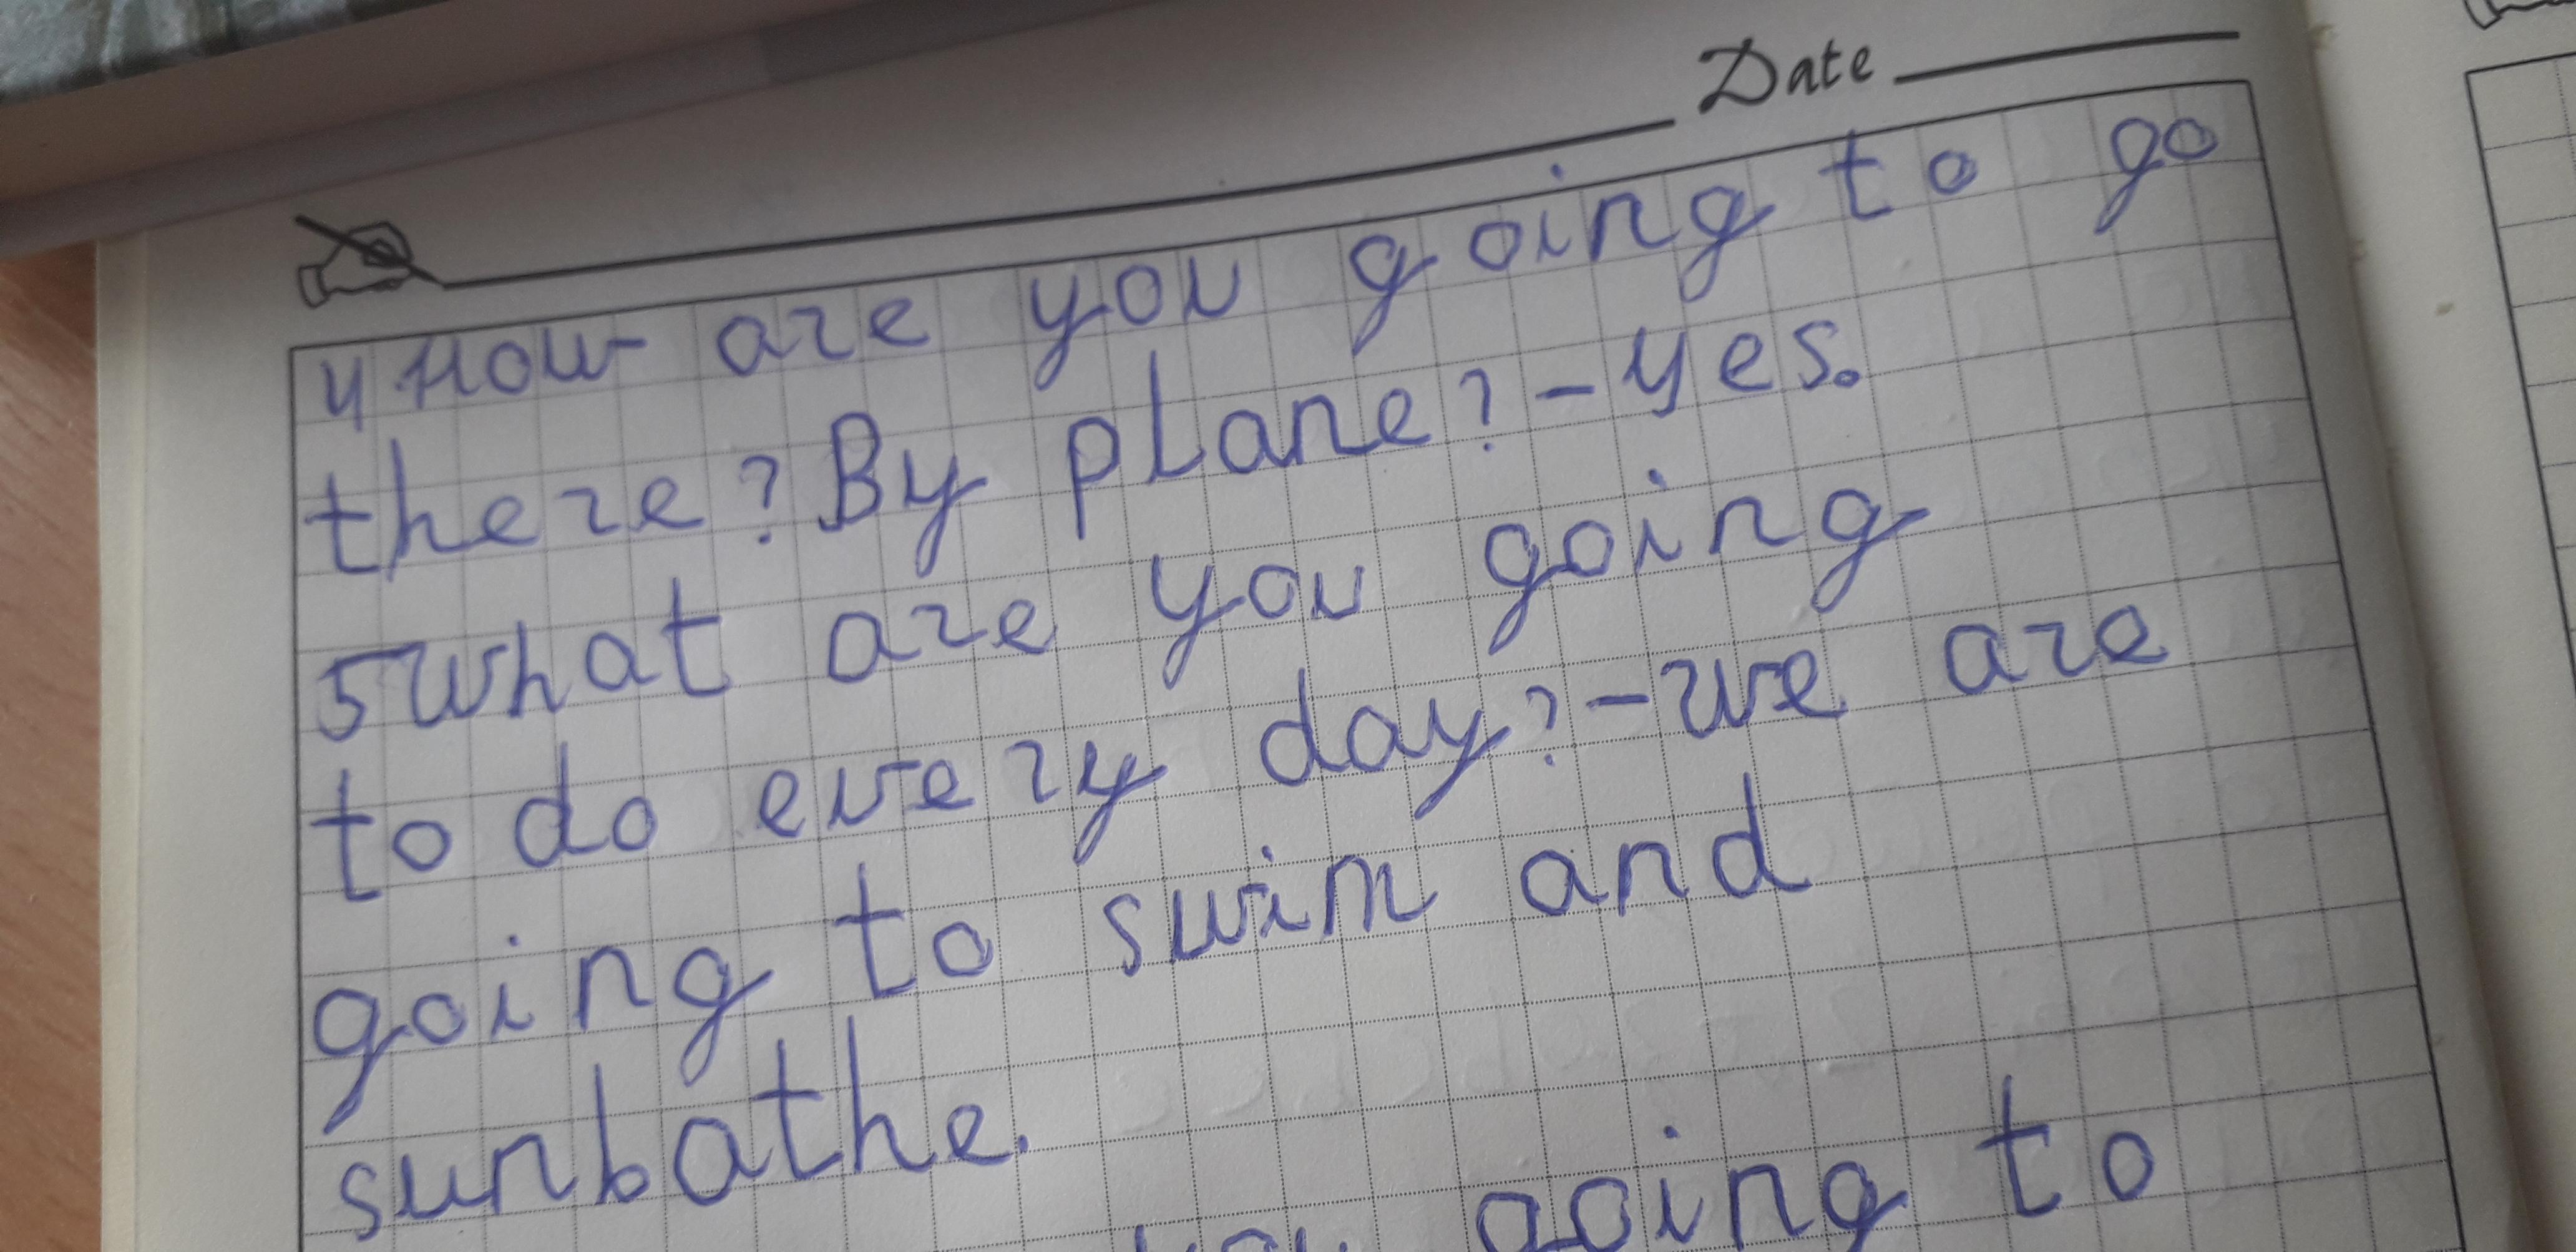 Date
4 How are you going to go
there? By plane? - yes.
5 what are you going
to do every day? - we are
going to swim and
sunbathe.
you going to